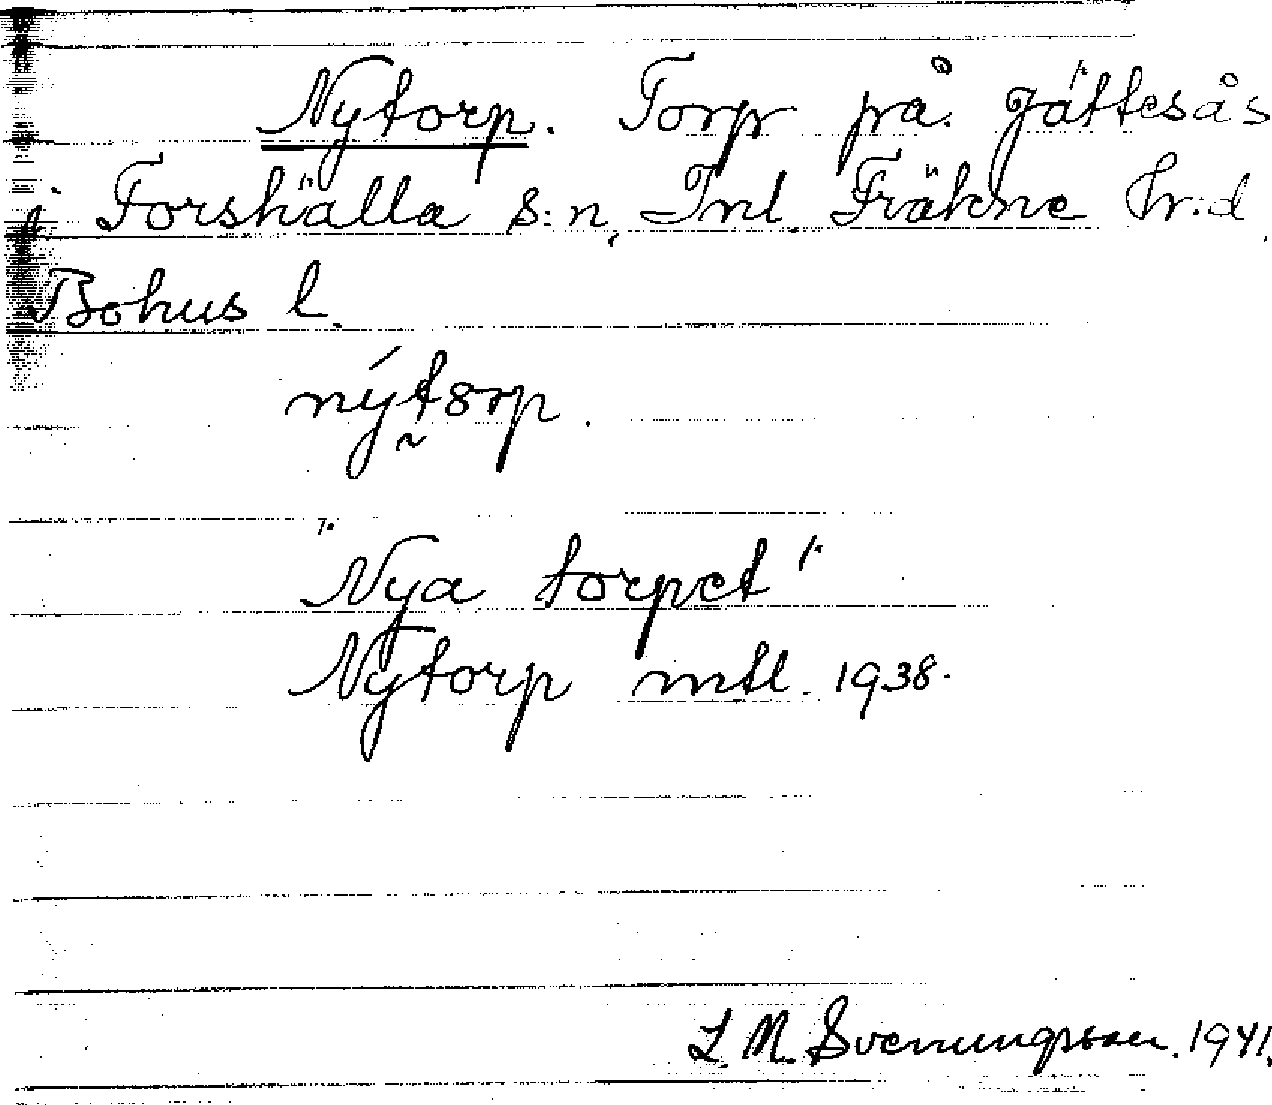 Nytorp. Torp på Jättesås
i Forshälla s:n, Inl. Fräkne hr:d.
Bohus l.
nýtorp.
"Nya torpet"
Nytorp mtl. 1938.
L. M. Svenungsson. 1941.